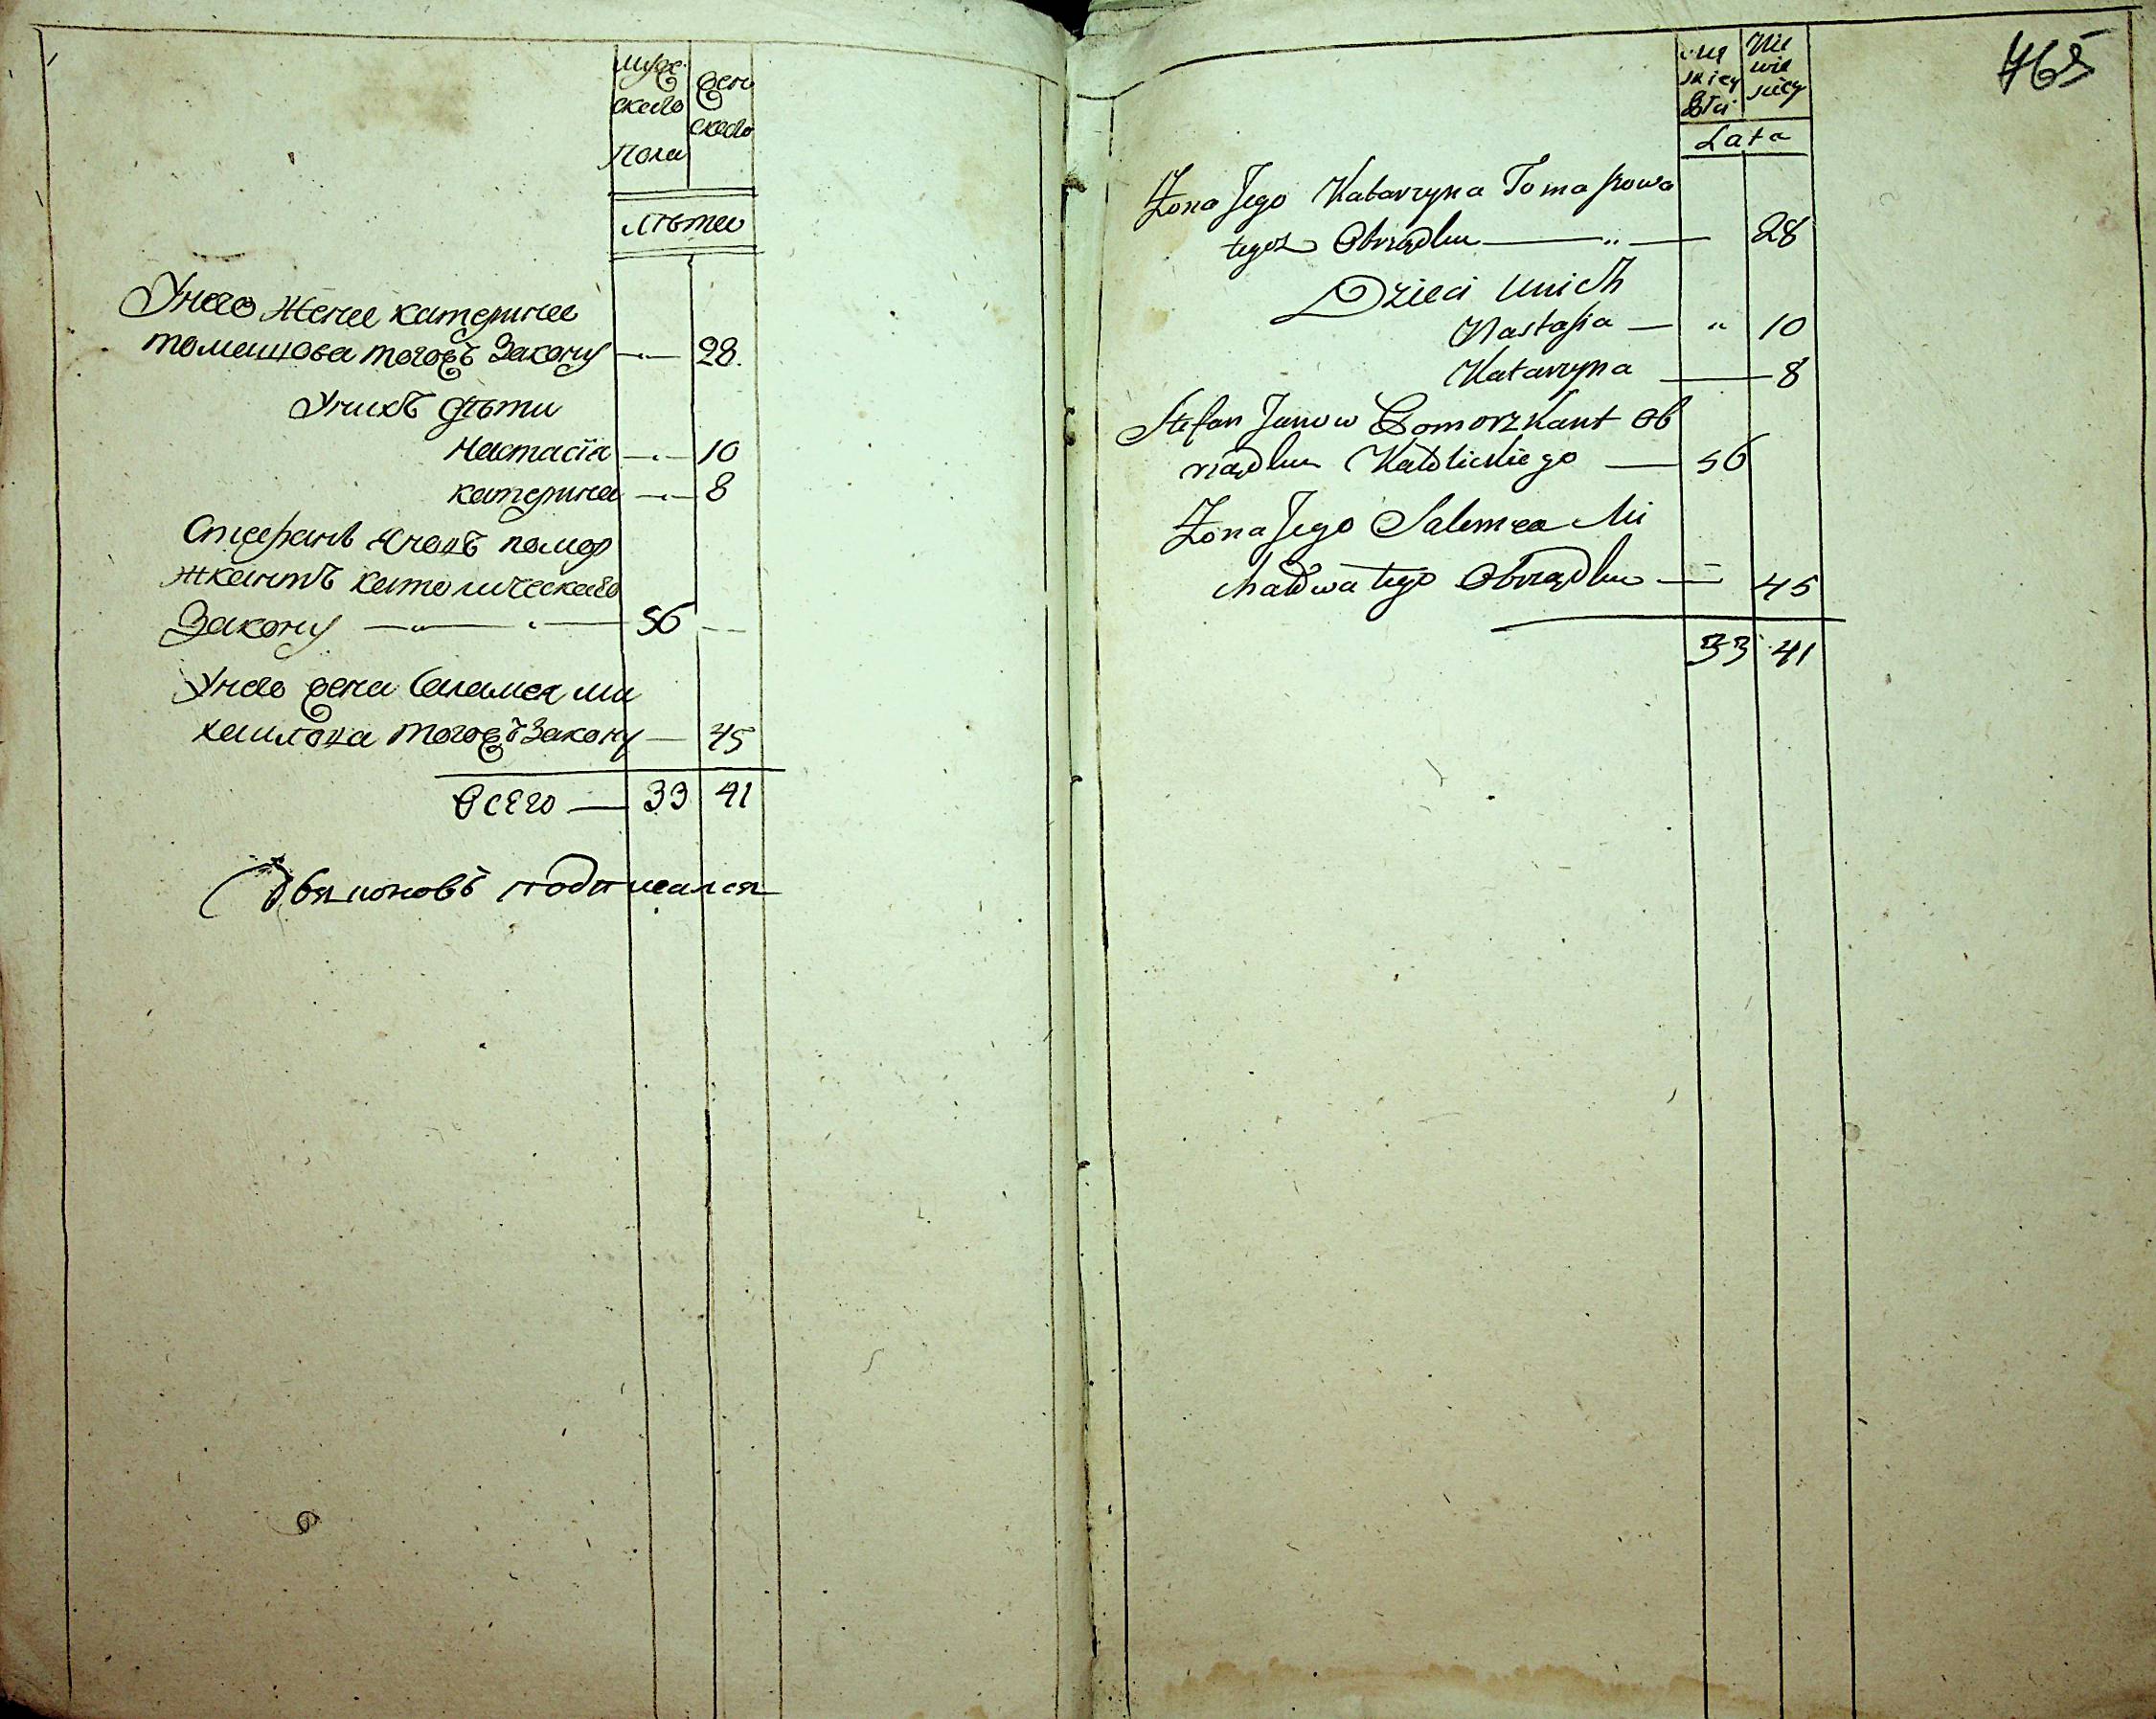 мужескаго
Пола
женскаго
лѣта
Унего жена катерина
томашова тогожъ Закону — 28.
Унихъ дѣти
Настасїя — 10
катерина — 8
Стефанъ Яновъ помор
жкантъ католическаго
Закону — 56
Унего жена Саламея ми
хайлова тогожъ Закону — 45
Всего — 33 41
подписался
465
Lata
Żona Jego Katarzyna Tomaszowa
tegoż Obrządku — " — 28
Dzieci unich
Nastasia — " 10
Katarzyna — 8
Stefan Janow Pomorzkant Ob
rządku Katolickiego — 56
Żona Jego Salomea Mi
chałowa tego Obrządku — 45
33 41